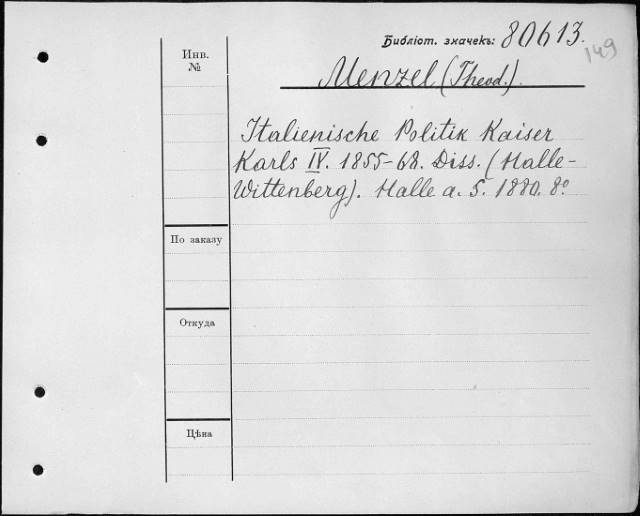 Библіот. значекъ: 80613.
149
Инв.
№
Menzel (Theod.).
Italienische Politik Kaiser
Karls IV. 1855-68. Diss. (Halle-
Wittenberg). Halle a. S. 1880. 8°
По заказу
Откуда
Цѣна